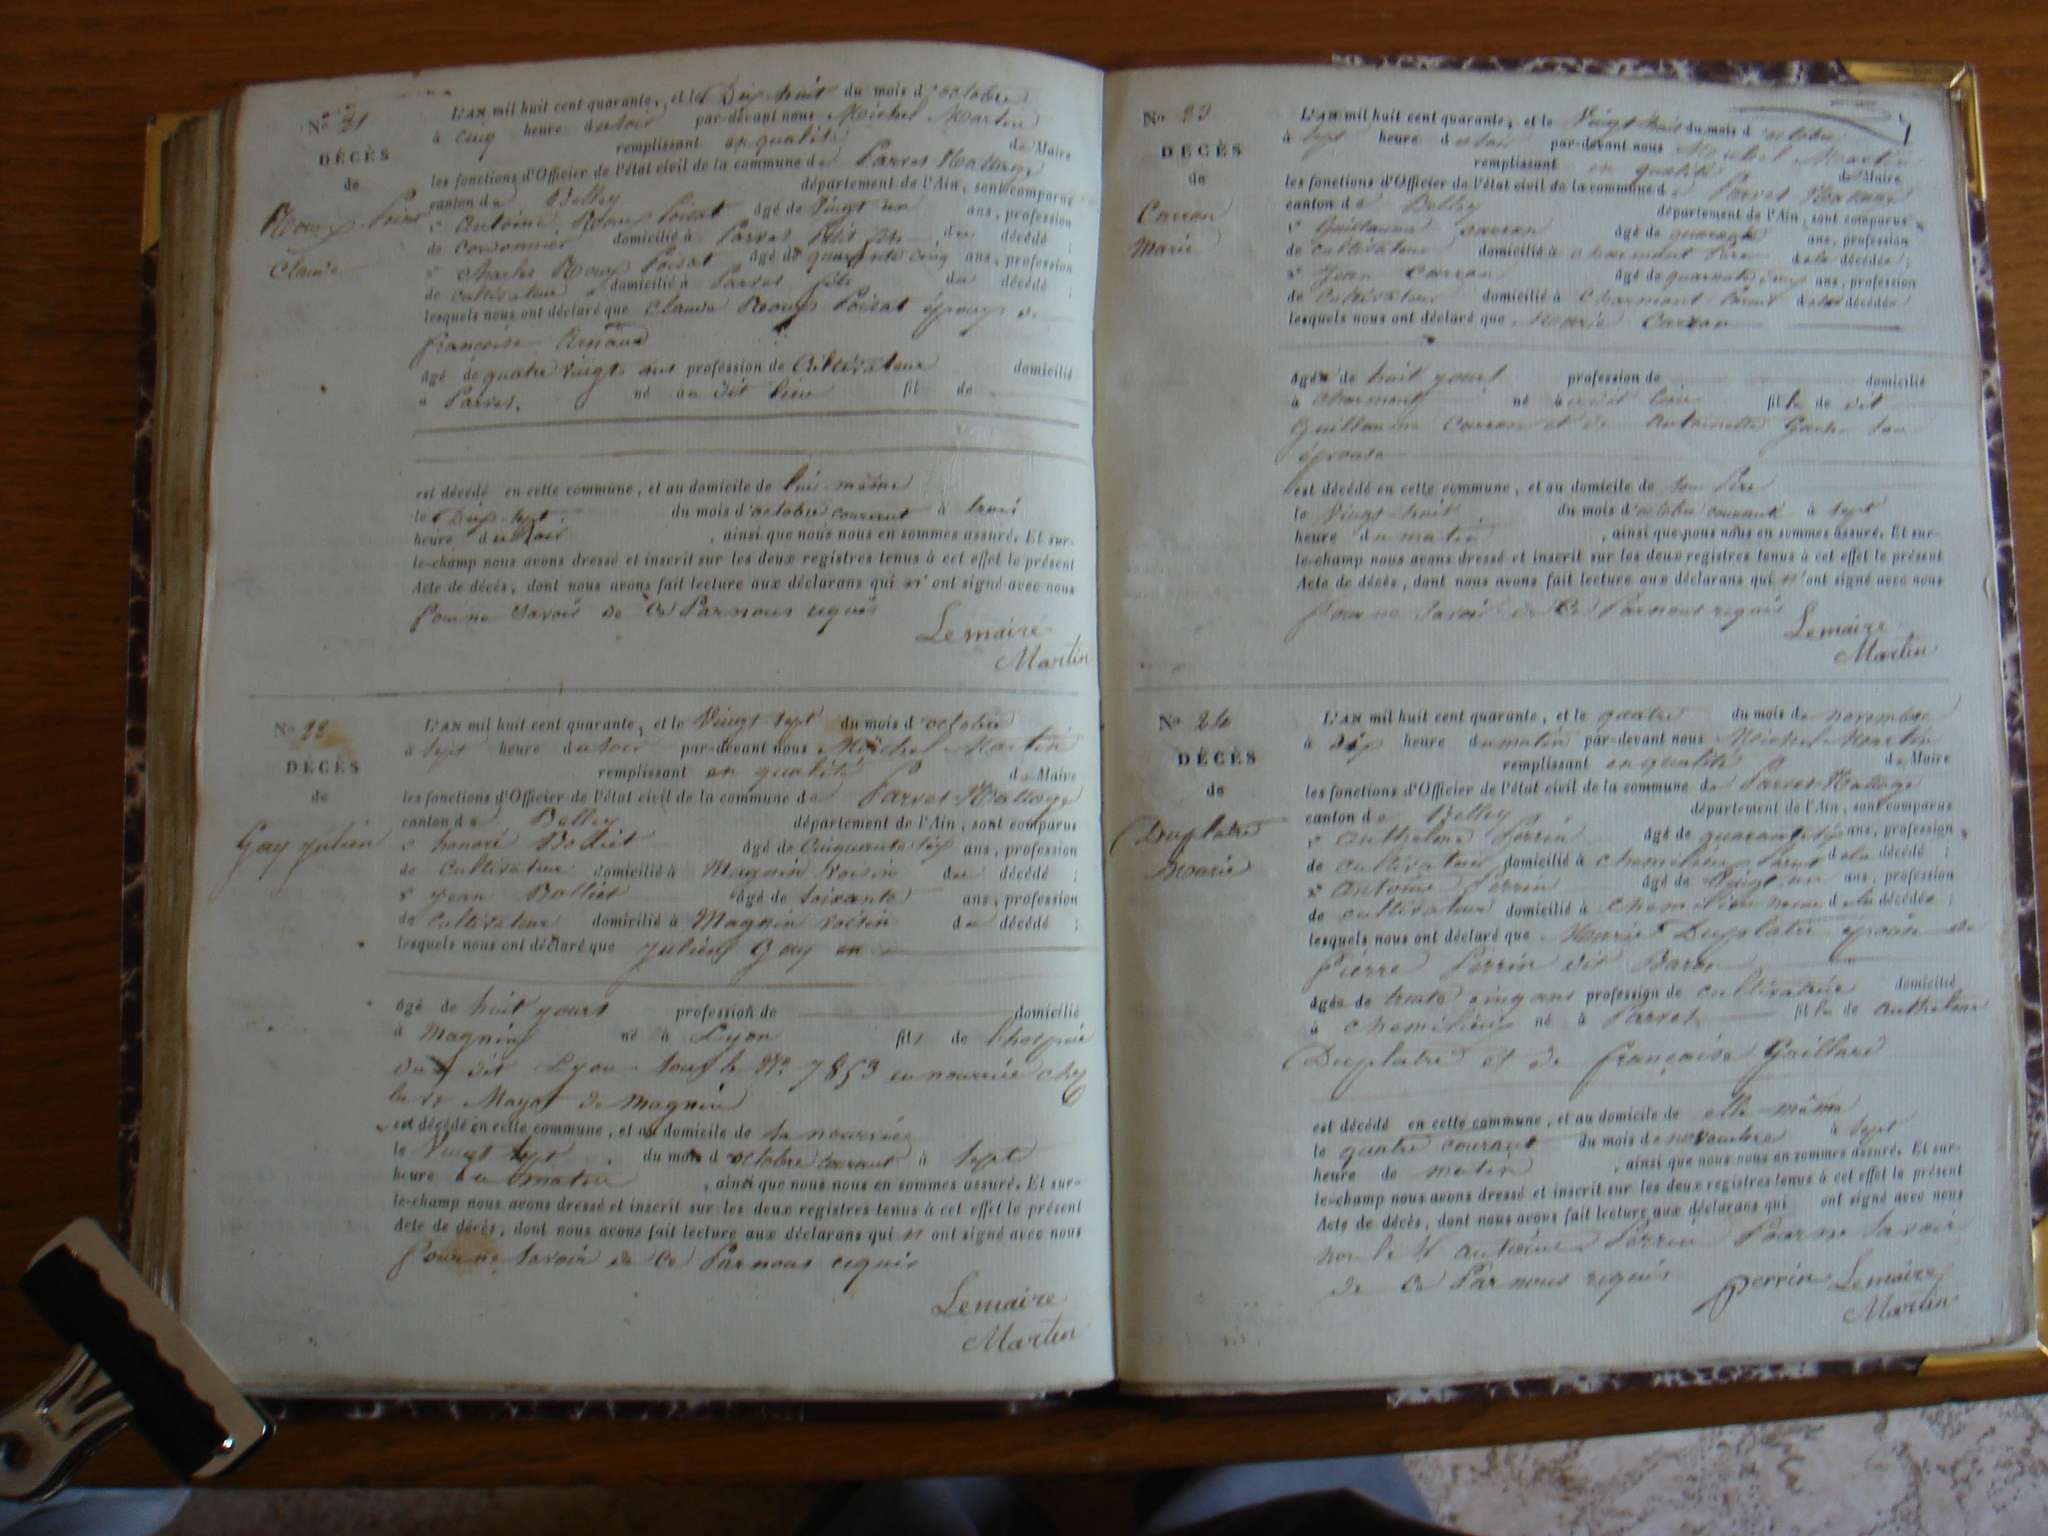 No 21
DÉCÈS
de
Roux Poizat
Claude
L'AN mil huit cent quarante, et le Dix huit du mois d'octobre
à cinq heure du soir par-devant nous Michel Martin
remplissant en qualité de Maire
les fonctions d'Officier de l'état civil de la commune de Parves Nattage
canton de Belley département de l'Ain, sont comparus
s Antoine Roux Poizat âgé de vingt un ans, profession
de cordonnier domicilié à Parves Petit fils du décédé ;
s Charles Roux Poizat âgé de quarante cinq ans, profession
de cultivateur domicilié à Parves fils du décédé ;
lesquels nous ont déclaré que Claude Roux Poizat époux de
françoise Arnaud
âgé de quatre vingts ans profession de Cultivateur domicilié
à Parves. né au dit lieu fil de
est décédé en cette commune, et au domicile de lui-même
le Dix-sept du mois d'octobre courant à trois
heure du soir , ainsi que nous nous en sommes assuré. Et sur-
le-champ nous avons dressé et inscrit sur les deux registres tenus à cet effet le présent
Acte de décès, dont nous avons fait lecture aux déclarans qui n'ont signé avec nous
Pour ne savoir de ce Par nous requis
Lemaire
Martin
No 22
DÉCÈS
de
Gay Julien
L'AN mil huit cent quarante, et le Vingt sept du mois d'octobre
à sept heure du soir par-devant nous Michel Martin
remplissant en qualité de Maire
les fonctions d'Officier de l'état civil de la commune de Parves Nattage
canton de Belley département de l'Ain, sont comparus
s honoré Bolliet âgé de Cinquante six ans, profession
de Cultivateur domicilié à Magnin Voisin du décédé ;
s Jean Bolliet âgé de soixante ans, profession
de Cultivateur domicilié à Magnin voisin du décédé ;
lesquels nous ont déclaré que Julien Gay en
âgé de huit jours profession de domicilié
à Magnin né à Lyon fils de l'hospice
du dit Lyon sous le No 7853 en nourrice chez
Mayot de Magnin
est décédé en cette commune, et au domicile de sa nourrice
le Vingt sept du mois d'octobre courant à sept
heure du matin , ainsi que nous nous en sommes assuré. Et sur-
le-champ nous avons dressé et inscrit sur les deux registres tenus à cet effet le présent
Acte de décès, dont nous avons fait lecture aux déclarans qui n'ont signé avec nous
Pour ne savoir de ce Par nous requis
Lemaire
Martin
No 23
DÉCÈS
de
Carran
Marie
L'AN mil huit cent quarante, et le Vingt huit du mois d'octobre
à sept heure du soir par-devant nous Michel Martin
remplissant en qualité de Maire
les fonctions d'Officier de l'état civil de la commune de Parves Nattage
canton de Belley département de l'Ain, sont comparus
s Guillaume Carran âgé de quarante ans, profession
de cultivateur domicilié à Charmont Père de la décédée ;
s Jean Carran âgé de quarante deux ans, profession
de Cultivateur domicilié à Charmont Parent de la décédée
lesquels nous ont déclaré que Marie Carran
âgée de huit jours profession de domicilié
à Charmont né au dit lieu fille de dit
Guillaume Carran et de Antoinette son
épouse
est décédé en cette commune, et au domicile de son Père
le Vingt huit du mois d'octobre courant à sept
heure du matin , ainsi que nous nous en sommes assuré. Et sur-
le-champ nous avons dressé et inscrit sur les deux registres tenus à cet effet le présent
Acte de décès, dont nous avons fait lecture aux déclarans qui n'ont signé avec nous
Pour ne savoir de Ce Par nous requis
Lemaire
Martin
No 24
DÉCÈS
de
Duplatre
Marie
L'AN mil huit cent quarante, et le quatre du mois de novembre
à dix heure du matin par-devant nous Michel Martin
remplissant en qualité de Maire
les fonctions d'Officier de l'état civil de la commune de Parves Nattage
canton de Belley département de l'Ain, sont comparus
s Anthelme Perrin âgé de quarante six ans, profession
de cultivateur domicilié à Chemilieu Parent de la décédé ;
s Antoine Perrin âgé de Vingt un ans, profession
de cultivateur domicilié à Chemilieu neveu de la décédée ;
lesquels nous ont déclaré que Marie Duplatre épouse de
Pierre Perrin dit Baron
âgée de trente cinq ans profession de cultivatrice domicilié
à Chemilieu né à Parves fille de Anthelme
Duplatre et de françoise Gaillard
est décédé en cette commune, et au domicile de elle-même
le quatre courant du mois de novembre à sept
heure de matin , ainsi que nous nous en sommes assuré. Et sur-
le-champ nous avons dressé et inscrit sur les deux registres tenus à cet effet le présent
Acte de décès, dont nous avons fait lecture aux déclarans qui ont signé avec nous
non le Sr Antoine Perrin Pour ne savoir
de Ce Par nous requis Perrin Lemaire
Martin